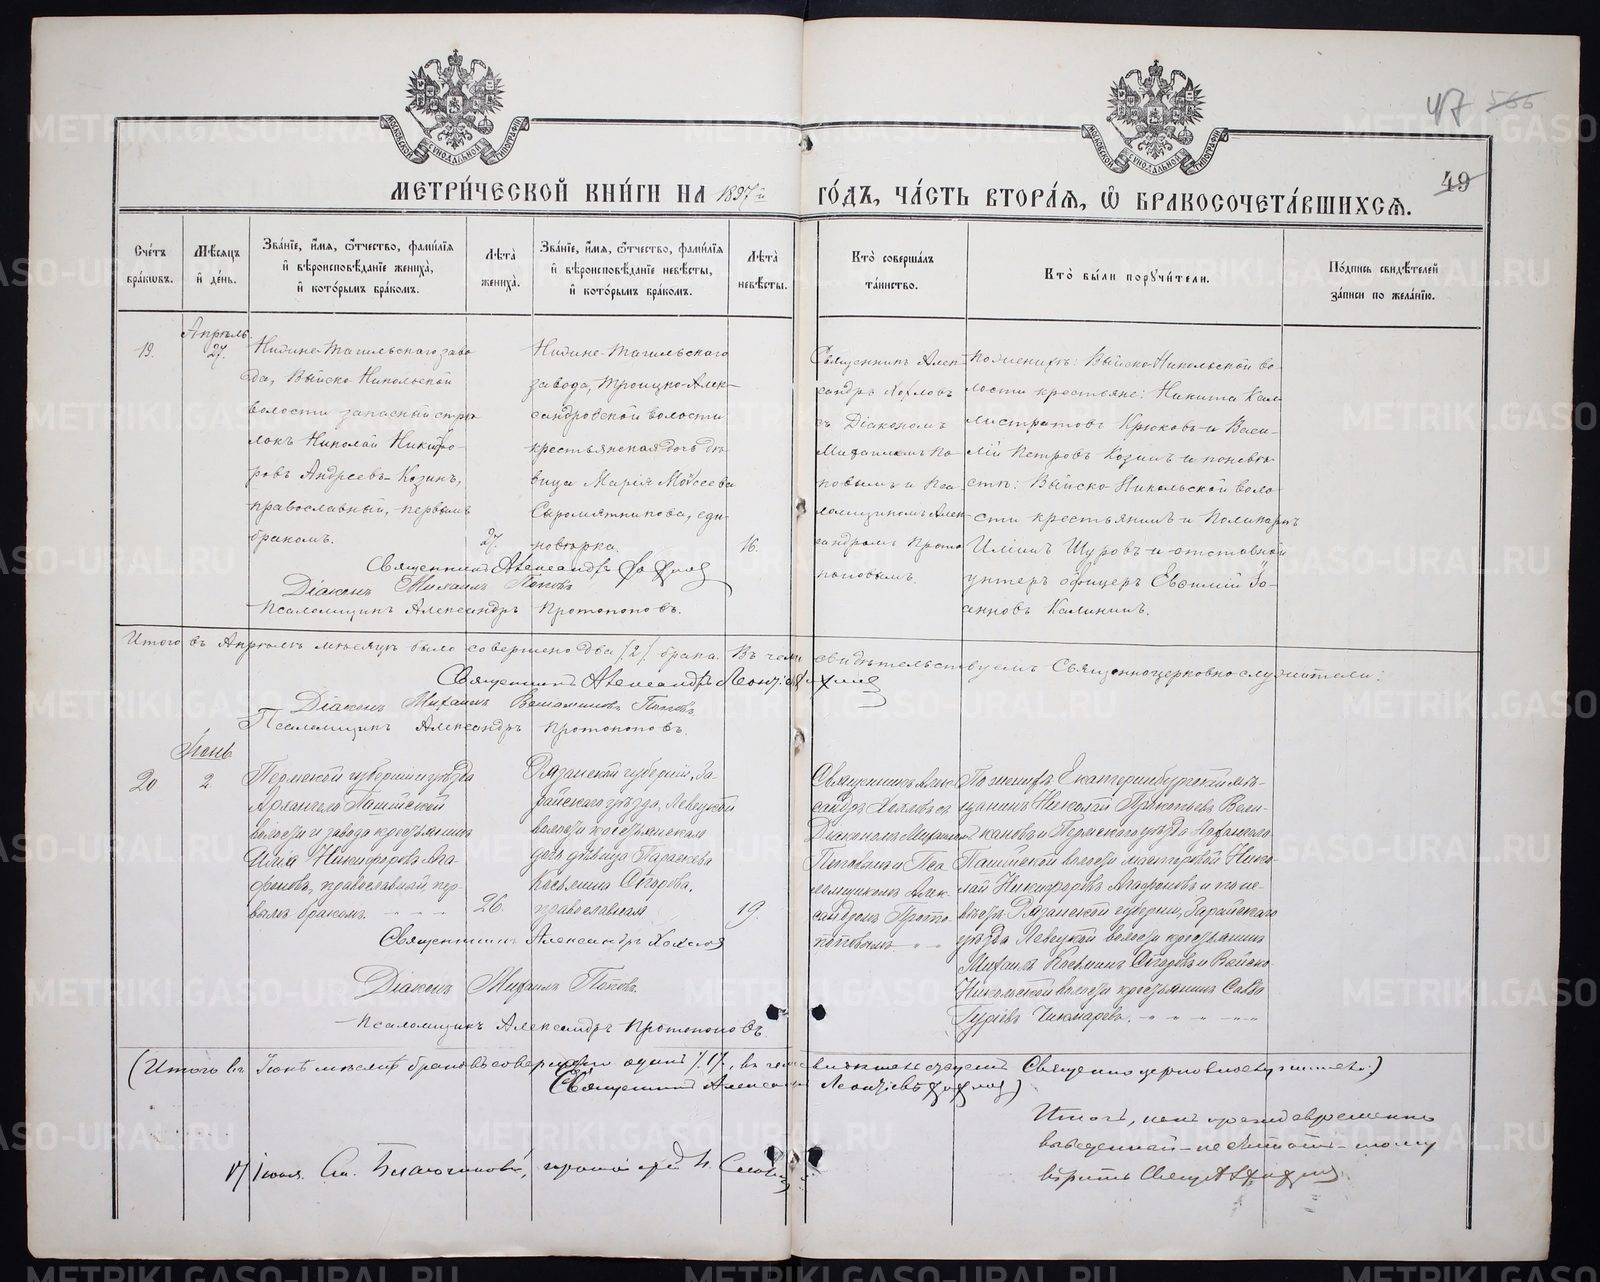 МЕТРИ́ЧЕСКОЙ КНИ́ГИ НА 1897й ГО́ДЪ, ЧА́СТЬ ВТОРА́Ѧ, Ѽ БРАКОСОЧЕТА́ВШИХСѦ.
47 566
49
Сче́тъ бра́кѡвъ.
Мѣ́сѧцъ и҆ де́нь.
Зва́нїе, и҆́мѧ, ѻ҆́тчество, фамѝлїѧ и҆ вѣроисповѣ́данїе жениха̀, и҆ кото́рымъ бра́комъ.
Лѣ́та жениха̀.
Зва́нїе, и҆́мѧ, ѻ҆́тчество, фамѝлїѧ и҆ вѣроисповѣ́данїе невѣ́сты, и҆ кото́рымъ бра́комъ.
Лѣ́та невѣ́сты.
Кто̀ соверша́лъ та́инство.
Кто̀ бы́ли порꙋчи́тели.
По́дпись свидѣ́телей за́писи по жела́нїю.
19.
Апрѣль
27.
Нижне-Тагильскаго заво-
да, Выйско-Никольской
волости запасный стрѣ-
локъ Николай Никифо-
ровъ Андреевъ-Козинъ,
православный, первымъ
бракомъ.
27.
Нижне-Тагильскаго
завода, Троицко-Алек-
сандровской волости
крестьянская дочь дѣ-
вица Марія Моѵсеева
Сыромятникова, еди-
новѣрка.
16.
Священникъ Алек-
сандръ Хохловъ
съ Діакономъ
Михаиломъ По-
повымъ и Пса-
ломщикомъ Алек-
сандромъ Прото-
поповымъ.
По женихѣ: Выйско-Никольской во-
лости крестьяне: Никита Кал-
листратовъ Крюковъ и Васи-
лій Петровъ Козинъ и по невѣ-
стѣ: Выйско-Никольской воло-
сти крестьянинъ и Поликарпъ
Илiинъ Щуровъ и отставной
унтеръ офицеръ Евѳимій Іо-
анновъ Калининъ.
Священникъ Александръ Хохловъ
Діаконъ Михаилъ Поповъ
Псаломщикъ Александръ Протопоповъ.
Итого въ Апрѣлѣ мѣсяцѣ было совершено два /2/ брака. Въ чемъ свидѣтельствуемъ Священноцерковнослужители:
Священникъ Александръ Леонт. Хохловъ
Діаконъ Михаилъ Поповъ
Псаломщикъ Александръ Протопоповъ.
20
Іюнь
2.
Пермской губерніи и уѣзда
Архангело Пашійской
волости и завода крестьянинъ
Илія Никифоровъ Ага-
фоновъ, православный, пер-
вымъ бракомъ.
26.
Рязанской губерніи, За-
райскаго уѣзда, Ловецкой
волости крестьянская
дочь дѣвица Параскева
Косьмина Огарова,
православная
19.
Священникъ Алек-
сандръ Хохловъ съ
Діакономъ Михаиломъ
Поповымъ и Пса-
ломщикомъ Алек-
сандромъ Прото-
поповымъ
По женихѣ Екатеринбургскій мѣ-
щанинъ Николай Прокопьевъ Вели-
кановъ и Пермскаго уѣзда Архангело-
Пашійской волости мастеровой Нико-
лай Никифоровъ Агафоновъ и по не-
вѣстѣ Рязанской губерніи, Зарайскаго
уѣзда Ловецкой волости крестьянинъ
Михаилъ Косьминъ Огаровъ и Выйско-
Никольской волости крестьянинъ Савва
Гуріевъ Чикмаревъ.
Священникъ Александръ Хохловъ
Діаконъ Михаилъ Поповъ.
Псаломщикъ Александръ Протопоповъ
(Итого въ Іюнѣ мѣсяцѣ браковъ совершено одинъ /1/, въ чемъ Священно церковнослужители:)
Священникъ Александръ Леонтіевъ Хохловъ)
Итогъ, какъ преждевременно
выведенный - не считать - тому
вѣрить Свящ. А. Хохловъ.
17 Іюля. Благочинный,